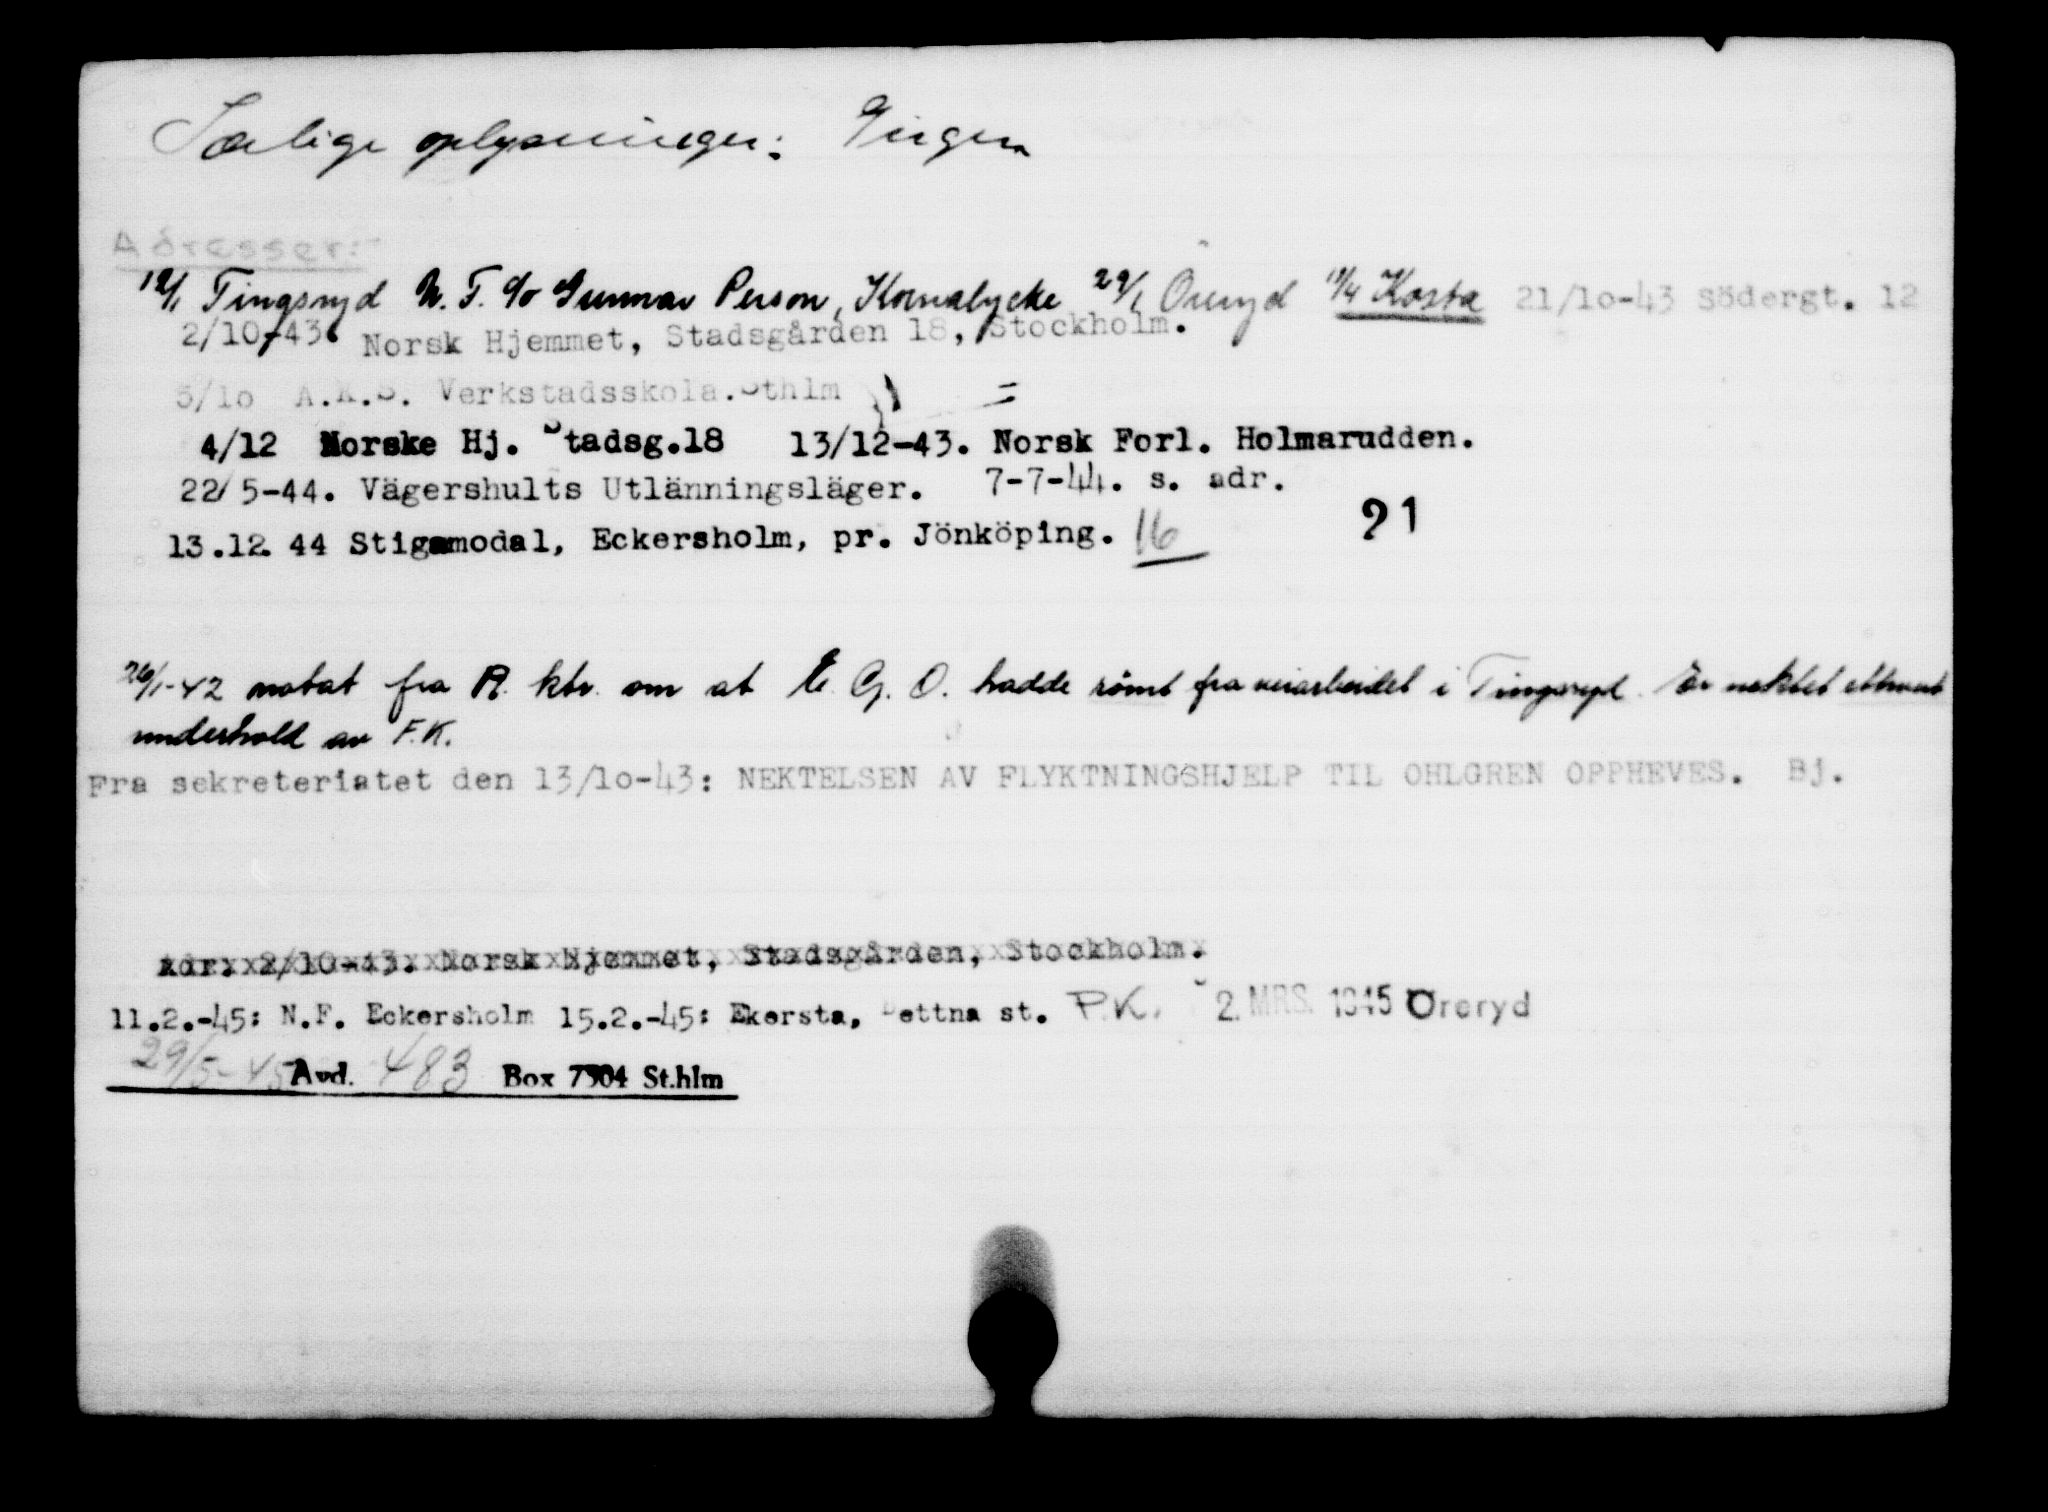 Særlige oplysninger: Ingen
Adresser:
19/1 Tingsryd N. F. c/o Gunnar Person, Kornalycke 29/1 Öreryd 19/4 Kosta 21/10-43 Södergt. 12
2/10-43. Norsk Hjemmet, Stadsgården 18, Stockholm.
5/10 A.K.S. Verkstadsskola. Sthlm =
4/12 Norske Hj. Stadsg.18 13/12-43. Norsk Forl. Holmarudden.
22/5-44. Vägershults Utlänningsläger. 7-7-44. s. adr.
13.12. 44 Stigamodal, Eckersholm, pr. Jönköping. 16 21
26/1-42 notat fra R. ktr. om at E. G. O. hadde rømt fra veiarbeidet i Tingsryd. Er nektet ethvert
underhold av F.K.
Fra sekreteriatet den 13/10-43: NEKTELSEN AV FLYKTNINGSHJELP TIL OHLGREN OPPHEVES. Bj.
Adr. 2/10-43. Norsk Hjemmet, Stadsgården, Stockholm.
11.2.-45: N.F. Eckersholm 15.2.-45: Ekersta, Bettna st. P.K. 2. MRS. 1945 Öreryd
29/5-45 Avd. 483 Box 7304 St.hlm